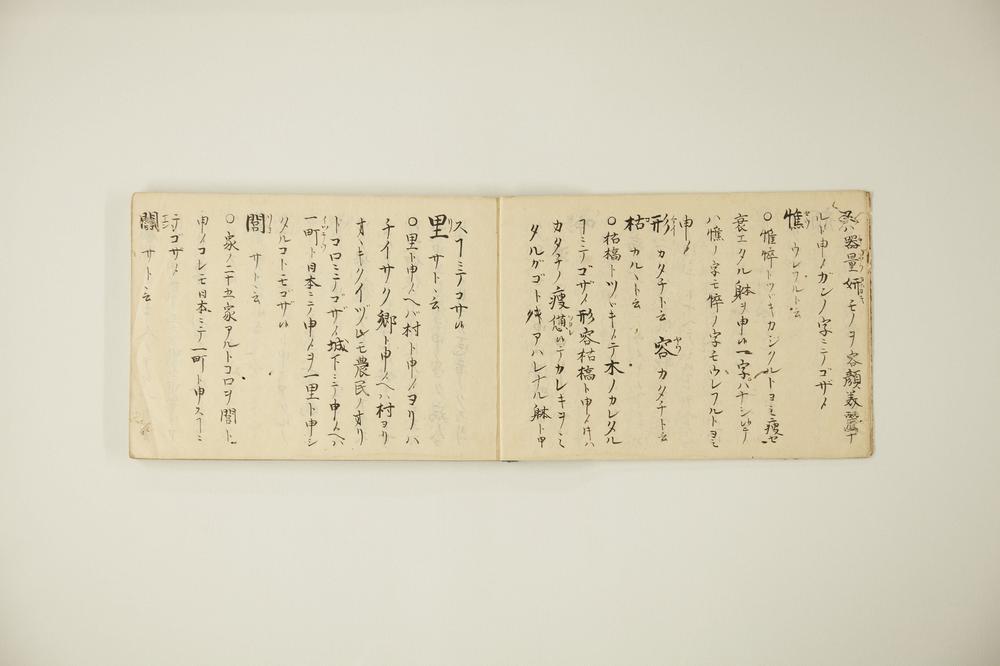 器量妍モノヲ容顔美麗ナ
ルト申メガンノ字ミテゴザメ
憔 ウレフルト云
○憔悴トツヾキカジクルトヨミ痩セ
衰エタル躰ヲ申ハ一字ハナシ
ハ憔ノ字モ悴ノ字モウレフルトヨミ
申メ
形 カタチト云 容 カタチト云
枯 カルヽト云
○枯槁トツヾキメテ木ノカレタル
フミテゴザメ形容枯槁ト申メ
カタチノ痩憊テカレキヲミ
タルガゴトクアハレナル躰ト申
スフミテコサル
里 サトト云
○里ト申メヘバ村ト申メヨリハ
チイサク郷ト申メヘハ村ヨリ
オヽキクイヅレモ農民ノオリ
トコロミテゴザメ城下ミテ申メヘバ
一町ト日本ミテ申メヲ一里ト申シ
タルコトモゴザル
閭 サトト云
○家ノ二十五家アルトコロヲ閭ト
申メコレモ日本ミテ一町ト申スフミ
テゴザメ
閻 サトト云